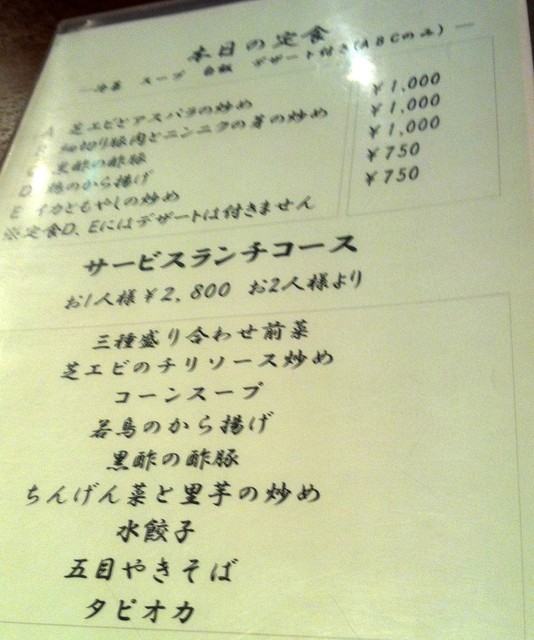 本日の定食
スープ 白飯 デザート付き(ABCのみ)
A 芝エビとアスパラの炒め ¥1,000
細切り豚肉とニンニクの芽の炒め ¥1,000
黒酢の酢豚 ¥1,000
D 鶏のから揚げ ¥750
E イカともやしの炒め ¥750
※定食D、Eにはデザートは付きません
サービスランチコース
お1人様¥2,800 お2人様より
三種盛り合わせ前菜
芝エビのチリソース炒め
コーンスープ
若鳥のから揚げ
黒酢の酢豚
ちんげん菜と里芋の炒め
水餃子
五目やきそば
タピオカ